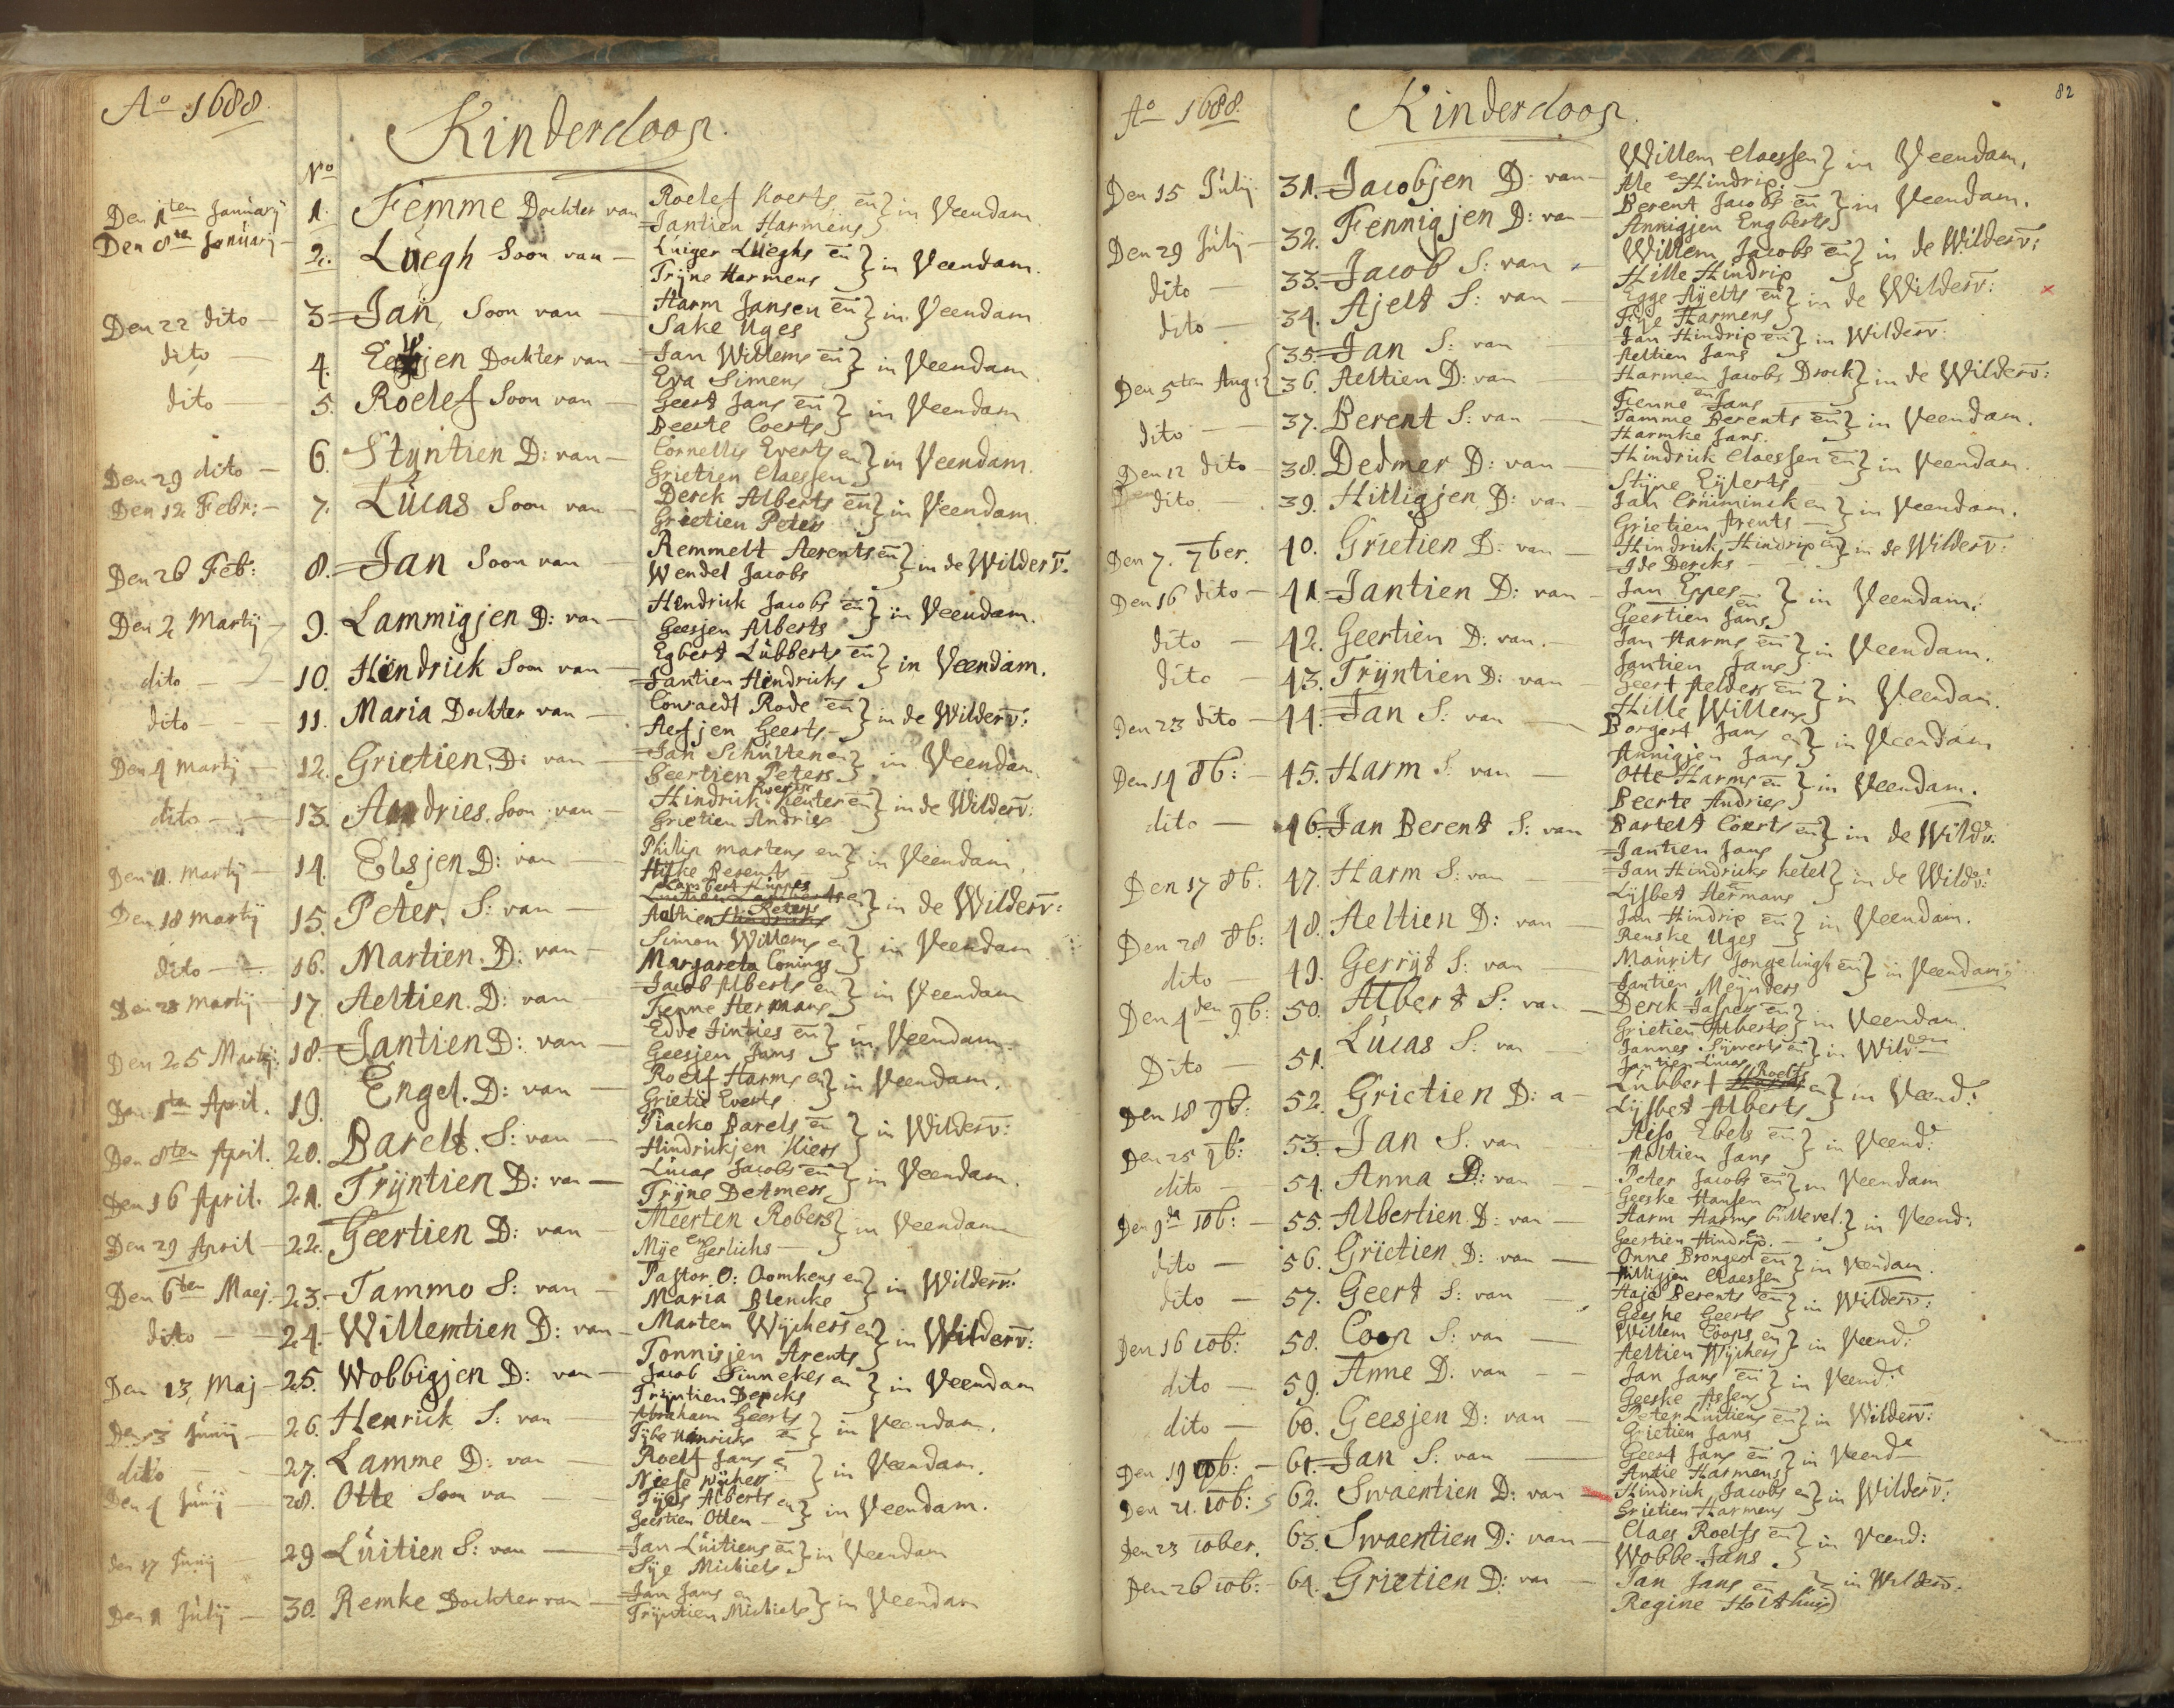 Ao 1688.
Kinderdoop.
No
Den 1ten January 1. Femme Dochter van Roelef Koerts, en } in Veendam
Jantien Harmens
Den 8te January 2. Luegh Soon van Luiger Lueghs en } in Veendam.
Trijne Harmens
Den 22 dito 3 Jan, Soon van Harm Jansen en } in Veendam
Sake Uges
dito 4. Dochter van Jan Willems en } in Veendam
Eva Simens
dito 5. Roelef Soon van Geert Jans en } in Veendam
Beerte Coerts
Den 29 dito 6. Styntien D: van Cornellis Everts en } in Veendam.
Grietien Claessen
Den 12 Febr: 7. Lucas Soon van Derck Alberts en } in Veendam.
Grietien Peters
Den 26 Feb: 8. Jan Soon van Remmelt Aerents en } in de Wilderv.
Wendel Jacobs
Den 2 Martij 9. Lammigjen D: van Hendrick Jacobs en } in Veendam.
Geesjen Alberts
dito 10. Hendrick Soon van Egbert Lubberts en } in Veendam.
Jantien Hendricks
dito 11. Maria Dochter van Conraedt Rode en } in de Wilderv:
Aefjen Geerts
Den 4 Martij 12. Grietien. D: van Jan Schulten en } in Veendam
Geertien Peters
dito 13. Andries. Soon van Hindrick Keuter en } in de Wilderv:
Grietien Andries
Den 11. Martij 14. Elsjen D: van Philip Martens en } in Veendam
Hilke Berents
Den 18 Martij 15. Peter. S: van Lambert Luppes en } in de Wilderv:
Aeltien Peters
dito 16. Martien. D: van Simon Willems en } in Veendam
Margareta Conings
Den 28 Martij 17 Aeltien. D: van Jacob Alberts en } in Veendam
Fenne Hermans
Den 25 Martij: 18. Jantien D: van Edde Jinties en } in Veendam.
Geesjen Jans
Den 1ten April. 19. Engel. D: van Roelf Harms en } in Veendam.
Grietie Everts
Den 8ten April. 20. Barelt. S: van Tiacko Barels en } in Wilderv:
Hindrickjen Kiers
Den 16 April. 21. Trijntien D: van Lucas Jacobs en } in Veendam.
Trijne Detmers
Den 29 April 22. Geertien D: van Meerten Robers } in Veendam
Mije en Gerlichs
Den 6ten Maej. 23. Tammo S: van Pastor. O: Oomkens en } in Wilderv:
Maria Blencke
dito 24. Willemtien D: van Marten Wijchers en } in Wilderv:
Tonnisjen Arents
Den 13, Maj 25. Wobbigjen D: van Jacob Sinnekes en } in Veendam
Trijntien Dercks
Den 3 Junij 26. Henrick S: van Abraham Geerts } in Veendam.
Tijbe Hinricks en
dito 27. Lamme D: van Roelf Jans en } in Veendam.
Niese Wijchers
Den 4 Junij 28. Otte Soon van Tijes Alberts en } in Veendam.
Geertien Otten
den 17 Junij 29 Luitien S: van Jan Luitiens en } in Veendam
Sije Michiels
Den 1 Julij 30. Remke Dochter van Jan Jans en } in Veendam
Trijntien Michiels
82
Ao 1688.
Kinderdoop.
Den 15 Julij 31. Jacobjen D: van Willem Claessen } in Veendam.
Ale en Hindrip.
Den 29 Julij 32. Fennigjen D: van Berent Jacobs en } in Veendam.
Annigjen Engberts
dito 33. Jacob S: van Willem Jacobs en } in de Wilderv:
Hille Hindrip
dito 34. Ajelt S: van Egge Aijelts en } in de Wilderv:
Fije Harmens
35. Jan S: van Jan Hindrip en } in Wilderv:
Aeltien Jans
Den 5ten Aug: 36. Aeltien D: van Harmen Jacobs Drock } in de Wilderv:
Fenne en Jans
dito 37. Berent S: van Tamme Berents en } in Veendam.
Harmke Jans.
Den 12 dito 38. Dedmer D: van Hindrick Claessen en } in Veendam.
Stijne Eijlerts
dito. 39. Hilligjen D: van Jan Cruiminck en } in Veendam.
Grietien Arents
Den 7. 7ber. 40. Grietien D: van Hindrick Hindrip en } in de Wilderv:
Ide Dercks
Den 16 dito 41. Jantien D: van Jan Eppes en } in Veendam:
Geertien Jans
dito 42. Geertien D: van. Jan Harms en } in Veendam.
Jantien Jans
dito 43. Trijntien D: van Geert Aelders en } in Veendam.
Hille Willems
Den 23 dito 44. Jan S: van Borgert Jans en } in Veendam
Annigjen Jans
Den 14 8b: 45. Harm S: van Otte Harms en } in Veendam.
Beerte Andries
dito 46. Jan Berent S: van Bartelt Coerts en } in de Wildv:
Jantien Jans
Den 17 8b: 47. Harm S: van Jan Hindricks Ketel } in de Wildv:
Lijsbet en Hermans
Den 28 8b: 48. Aeltien D: van Jan Hindrip en } in Veendam.
Renske Uges
dito 49. Gerrijt S: van Maurits Jongelingh en } in Veendam
Jantien Meijnders
Den 4den 9b: 50. Albert S: van Derck Jaspers en } in Veendam.
Grietien Alberts
Dito 51. Lucas S: van Jannes Sijwerts en } in Wild
Jantien Lucas
Den 18 9b: 52. Grietien D: a Lubbert Roelfs en } in Veend:
Lijsbet Alberts
Den 25 9b: 53. Jan S: van Aiso Ebels en } in Veend:
Aeltien Jans
dito 54. Anna D: van Peter Jacobs en } in Veendam
Geeske Hansen
Den 9de 10b: 55. Albertien D: van Harm Harms Cillevel. } in Veend:
Geertien Hindrip. en
dito 56. Grietien D: van Onne Bronger en } in Veendam.
Hilligjen Claessen
dito 57. Geert S: van Haje Berents en } in Wilderv:
Geeske Geerts
Den 16 10b: 58. Coop S: van Willem Coops en } in Veend:
Aeltien Wijchers
dito 59. Anne D. van Jan Jans en } in Veend:
Geeske Assens
dito 60. Geesjen D: van Peter Luitiens en } in Wilderv:
Grietien Jans
Den 19 10b: 61. Jan S: van Geert Jans en } in Veend
Antie Harmens
Den 21. 10b: 62. Swaentien D: van Hindrick Jacobs en } in Wilderv:
Grietien Harmens
den 23 10ber. 63. Swaentien D: van Claes Roelfs en } in Veend:
Wobbe Jans
Den 26 10b: 64. Grietien D: van Jan Jans en } in Wilderv:
Regine Holthuis